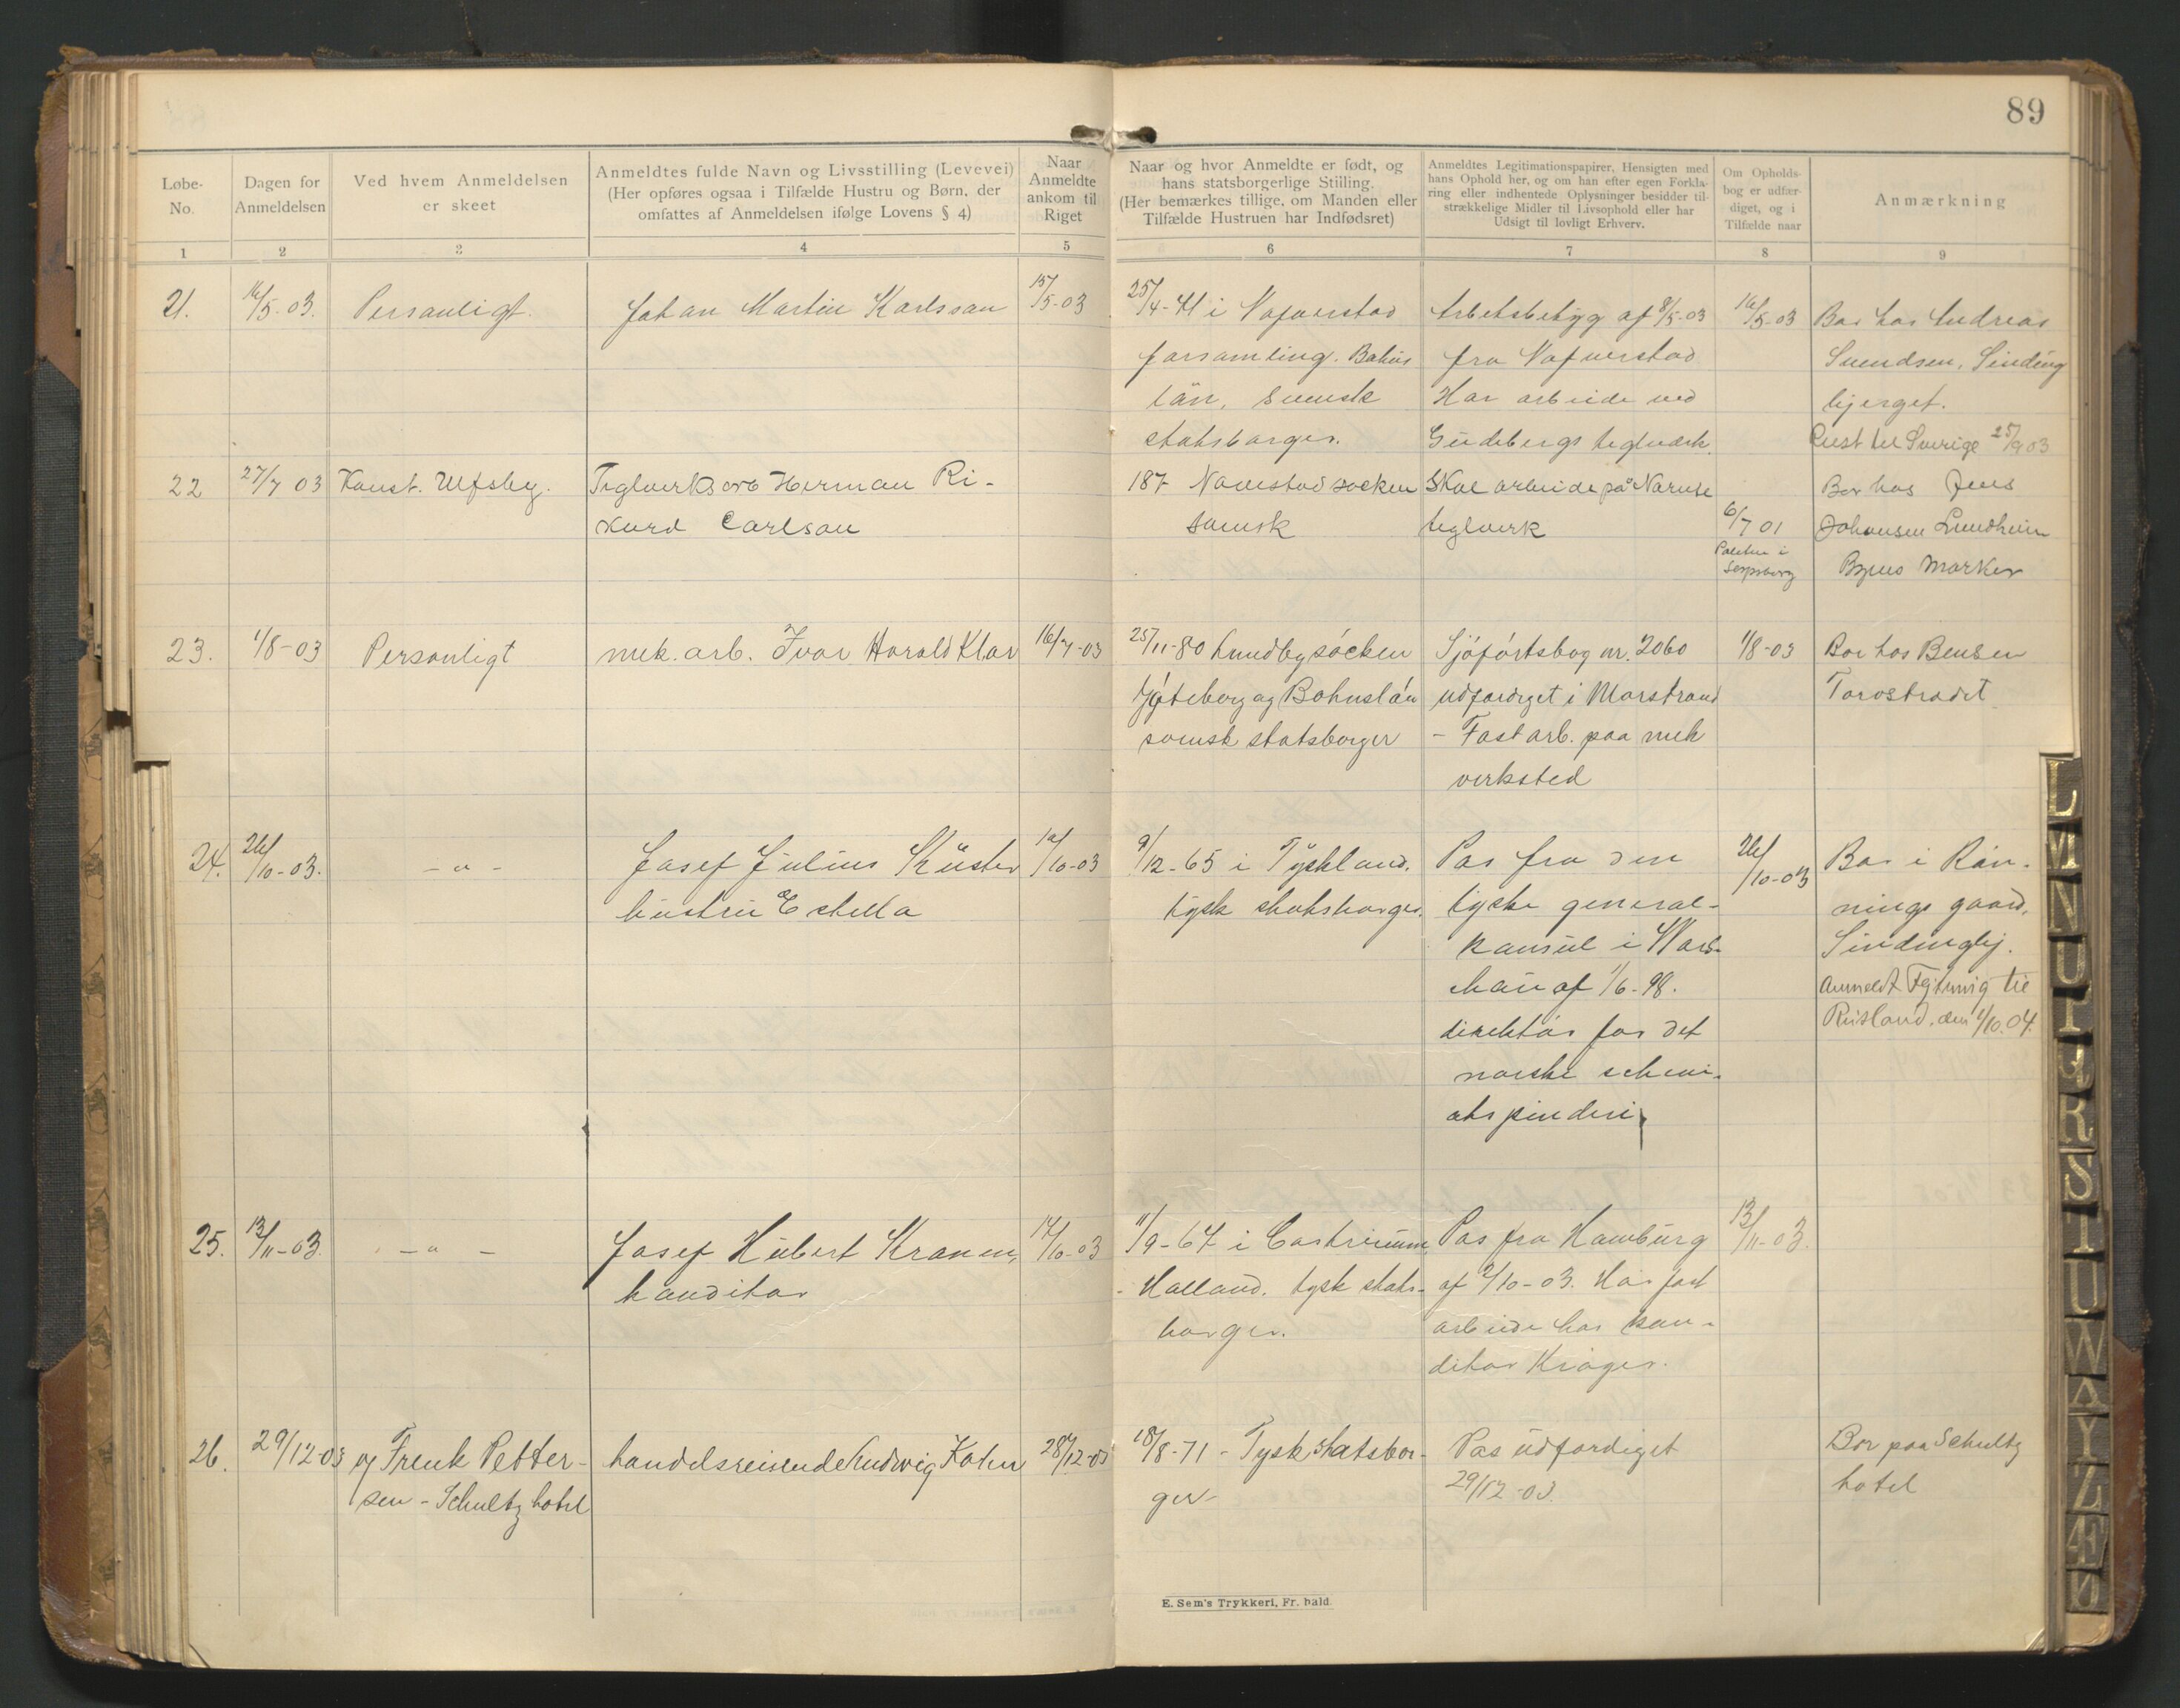 89
Løbe-
No.
Dagen for
Anmeldelsen
Ved hvem Anmeldelsen
er skeet
Anmeldtes fulde Navn og Livsstilling (Levevei)
(Her opføres ogsaa i Tilfælde Hustru og Børn, der
omfattes af Anmeldelsen ifølge Lovens § 4)
Naar
Anmeldte
ankom til
Riget
Naar og hvor Anmeldte er født, og
hans statsborgerlige Stiiling.
(Her bemærkes tillige, om Manden eller
Tilfælde Hustruen har Indfødsret)
Anmeldtes Legitimationspapirer, Hensigten med
hans Ophold her, og om han efter egen Forkla-
ring eller indhentede Oplysninger besidder til-
strækkelige Midler til Livsophold eller har
Udsigt til lovligt Erhverv.
Om Opholds-
bog er udfær-
diget, og i
Tilfælde naar
Anmærkning
1
2
3
4
5
6
7
8
9
21.
16/5-03.
Personligt.
Johan Martin Karlsson
15/5-03
25/4-41 i Nafverstad
forsamling. Bahus
län, svensk
statsborger.
Arbetsbetyg af 8/5-03
fra Nafverstad
Har arbeide ved
Gudebergs teglværk.
16/5-03
Bor hos Andreas
Svendsen, Sinding
bjerget.
Reist til Sverige 25/9 03
22
27/7 03
Konst. Ulfsby.
Teglverksarb Herman Ri-
kard Carlson
187 Naverstad socken
svensk
Skal arbeide på Narnte
teglverk
6/7 01
Politiet i
Sarpsborg
Bor hos Jens
Johansen Lundheim
Byens Marker
23.
1/8-03
Personligt
mek. arb. Ivar Harald Klar
16/7-03
25/11-80 Lundby söcken
Göteborg og Bohuslän
svensk statsborger
Sjöfórtsbog nr. 2060
udfærdiget i Marstrand
- Fast arb. paa mek
verksted
1/8-03
Bor hos Bensen
Torvstrædet
24.
26/10-03.
- " -
Josef Julius Küster
hustru Estella
12/10-03
9/12-65 i Tyskland.
tysk statsborger.
Pas fra den
tyske general-
konsul i Wars-
chau af 1/6-98.
direktør for det
norske schewi-
otspinderi
26/10-03
Bor i Røn-
nings gaard,
Sindingbj.
Anmeldt Flytning til
Rusland. den 1/10.04.
25.
13/11-03.
- " -
Josef Hubert Kranen,
konditor
14/10-03
11/9-67 i Castricum,
Holland. tysk stats-
borger.
Pas fra Hamburg
af 2/10-03. Har fast
arbeide hos kon-
ditor Krøger.
13/11-03.
26.
29/12-03
og Frenk Petter-
sen - Schultz hotel
handelsreisende Ludwig Kahn
28/12-03
18/8-71 - Tysk statsbor-
ger-
Pas udfærdiget
29/12-03.
Bor paa Schultz
hotel
E. Sem's Trykkeri, Fr. hald.
L
M
N
U
P
Q
R
S
T
U
W
A
Y
Z
Æ
Ø